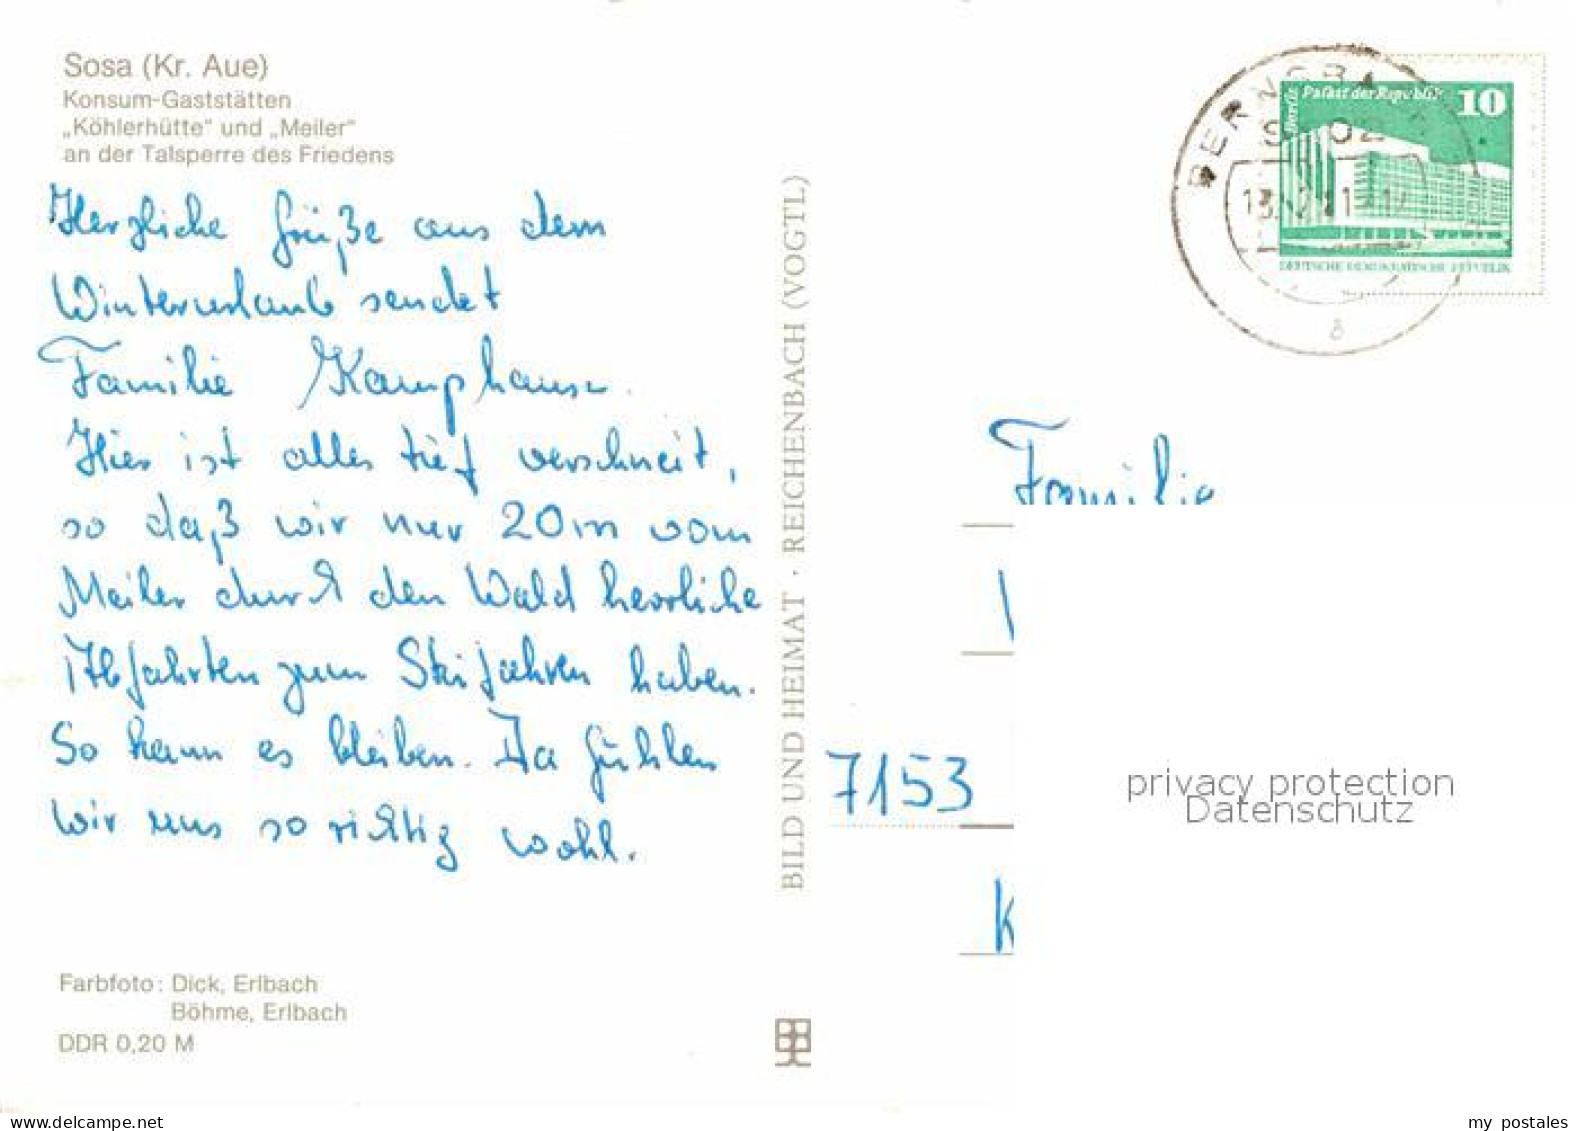 Sosa (Kr. Aue)
Konsum-Gaststätten
„Köhlerhütte" und „Meiler"
an der Talsperre des Friedens
Herzliche Grüße aus dem
Winterurlaub sendet
Familie Kamphausen.
Hier ist alles tief verschneit,
so daß wir nur 20m vom
Meiler durch den Wald herrliche
Abfahrten zum Skifahren haben.
So kann es bleiben. Da fühlen
wir uns so richtig wohl.
Farbfoto: Dick, Erlbach
Böhme, Erlbach
DDR 0,20 M
BILD UND HEIMAT · REICHENBACH (VOGTL)
Berlin Palast der Republik 10
DEUTSCHE DEMOKRATISCHE REPUBLIK
Familie
7153
K
privacy protection
Datenschutz
www.delcampe.net
my_postales